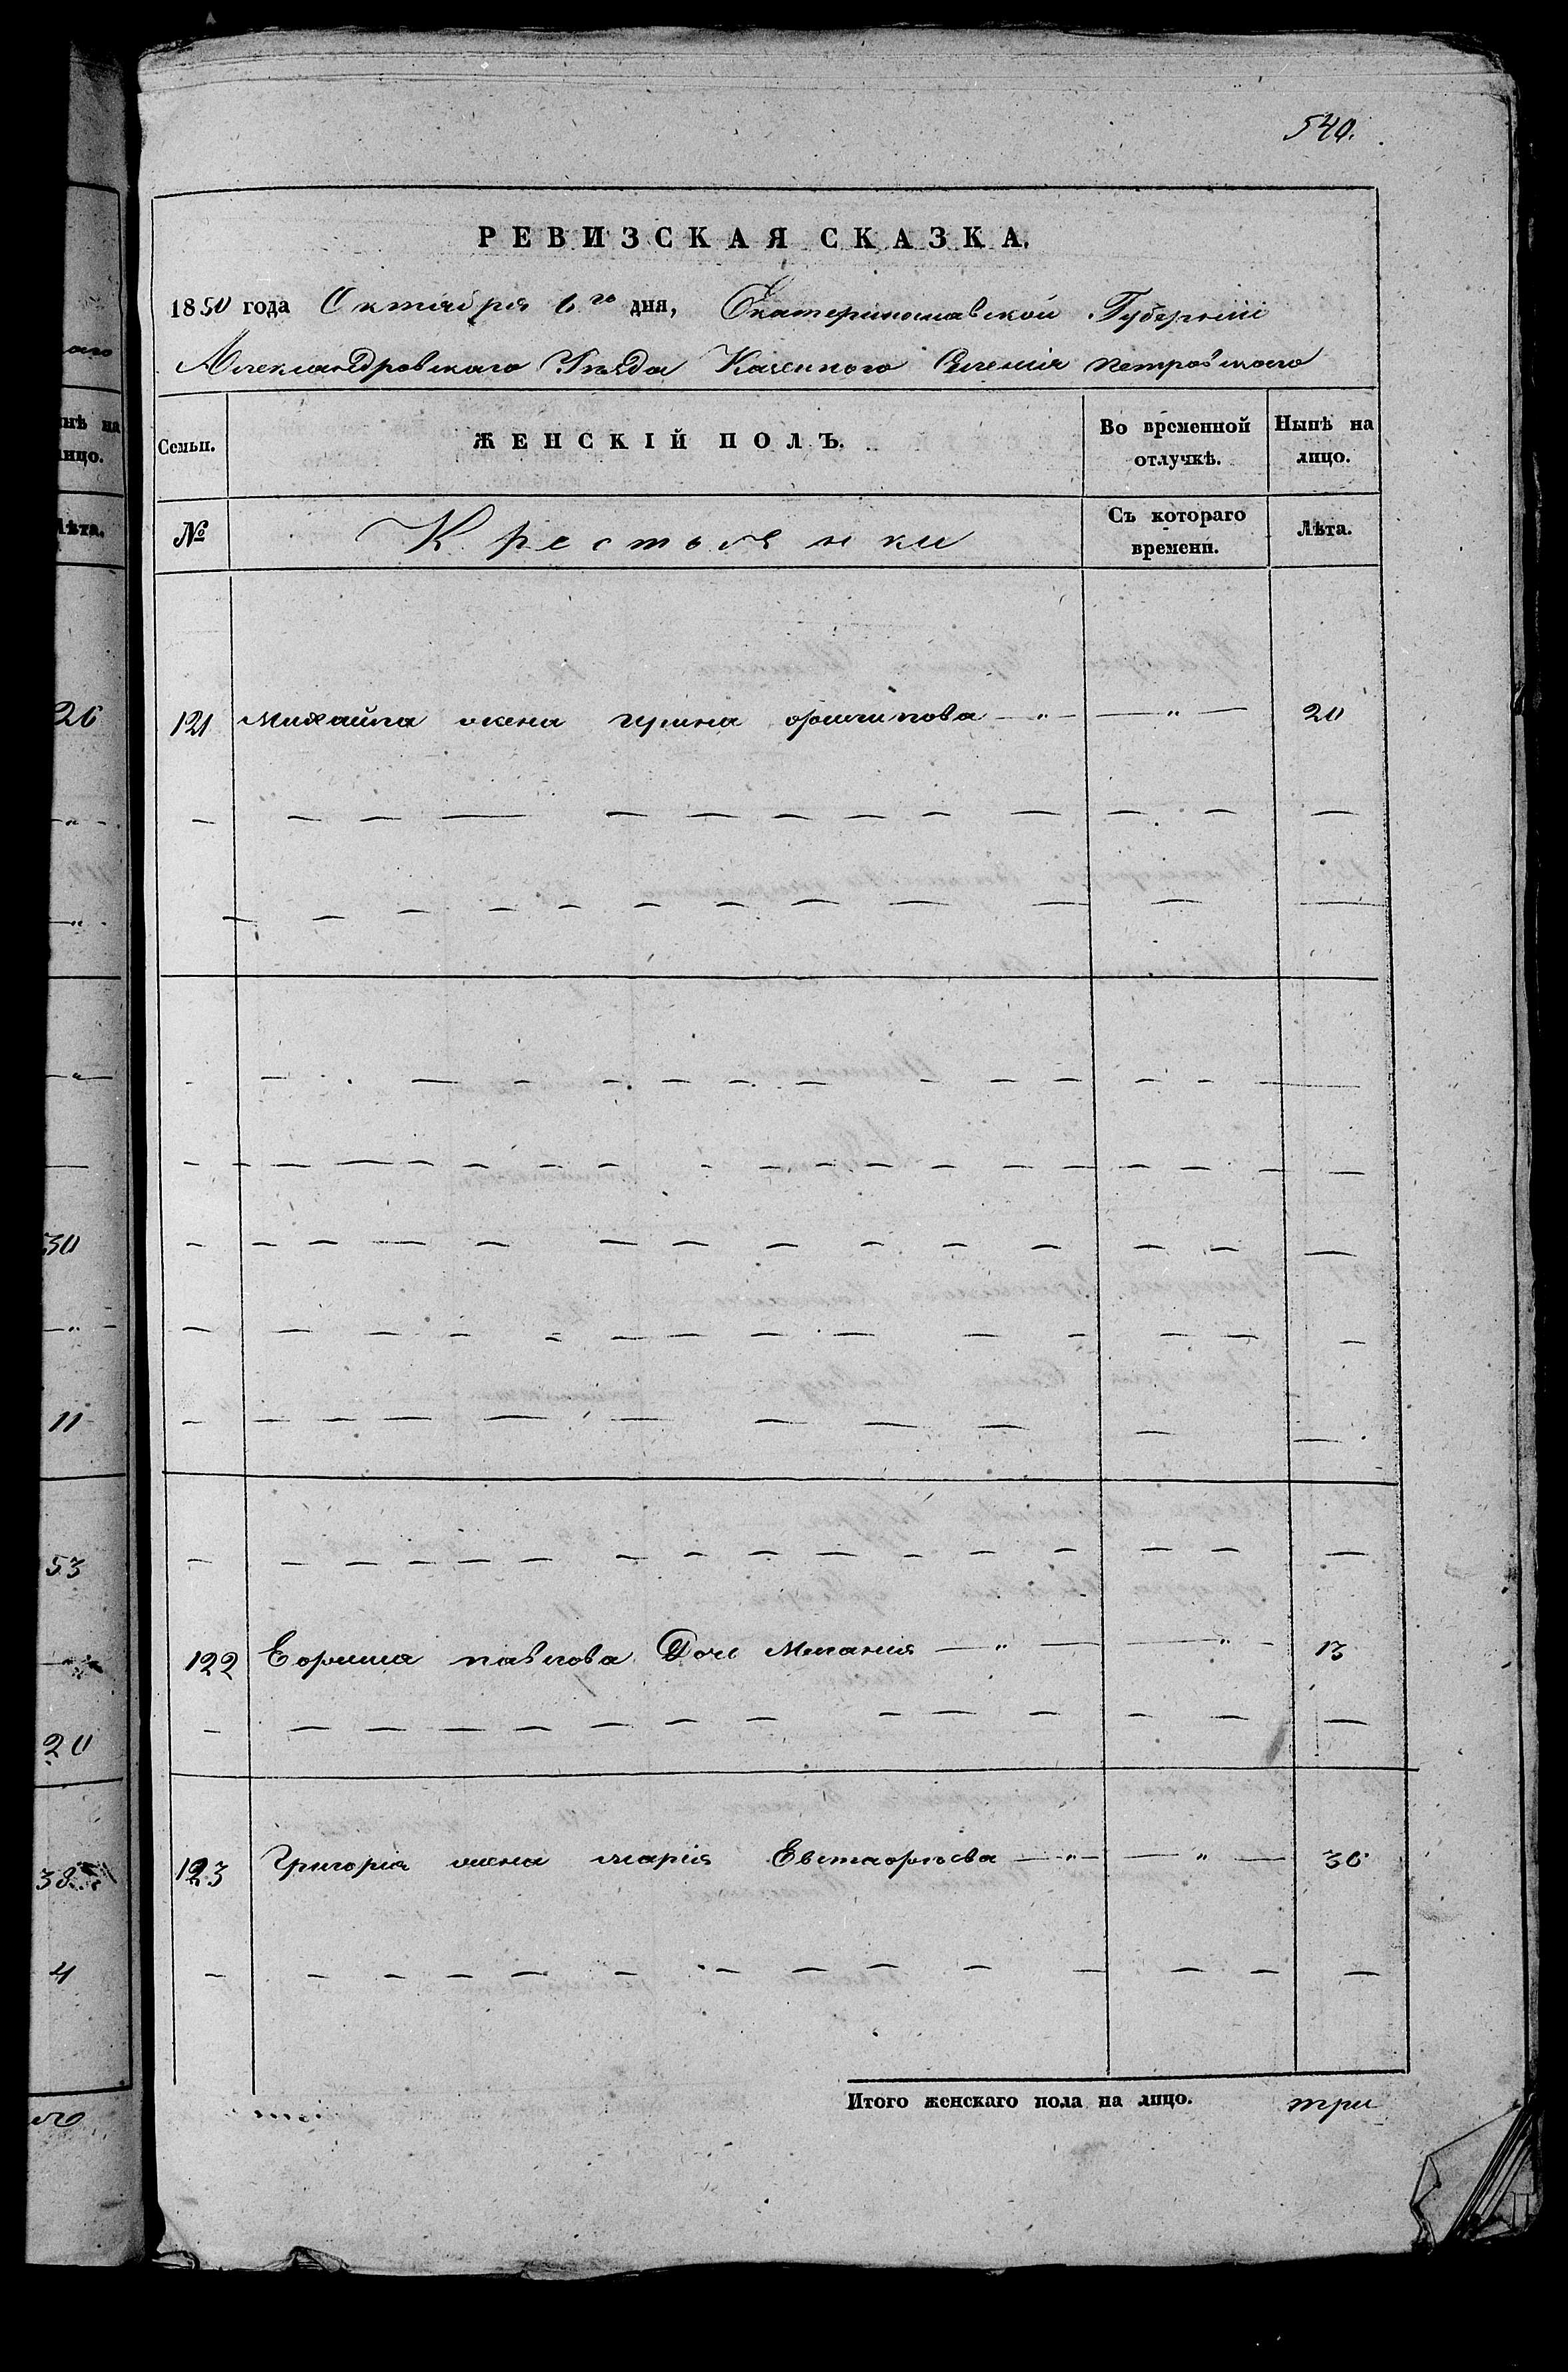 540.
РЕВИЗСКАЯ СКАЗКА.
1850 года Октября 6го дня, Екатеринославской Губернии
Александровскаго Уѣзда Казеннаго Селенія петровскаго
Семьи. ЖЕНСКІЙ ПОЛЪ. Во временной отлучкѣ. Нынѣ на лицо.
№ Крестьянки Съ котораго времени. Лѣта.
121 Михайла жена ирина филипова — „ — — „ — 20
122 Ефима павлова Дочь Мелания — „ — — „ — 13
123 Григория жена марія Евстафиева — „ — — „ — 36
Итого женскаго пола на лицо. три
26
30
11
53
20
38
4